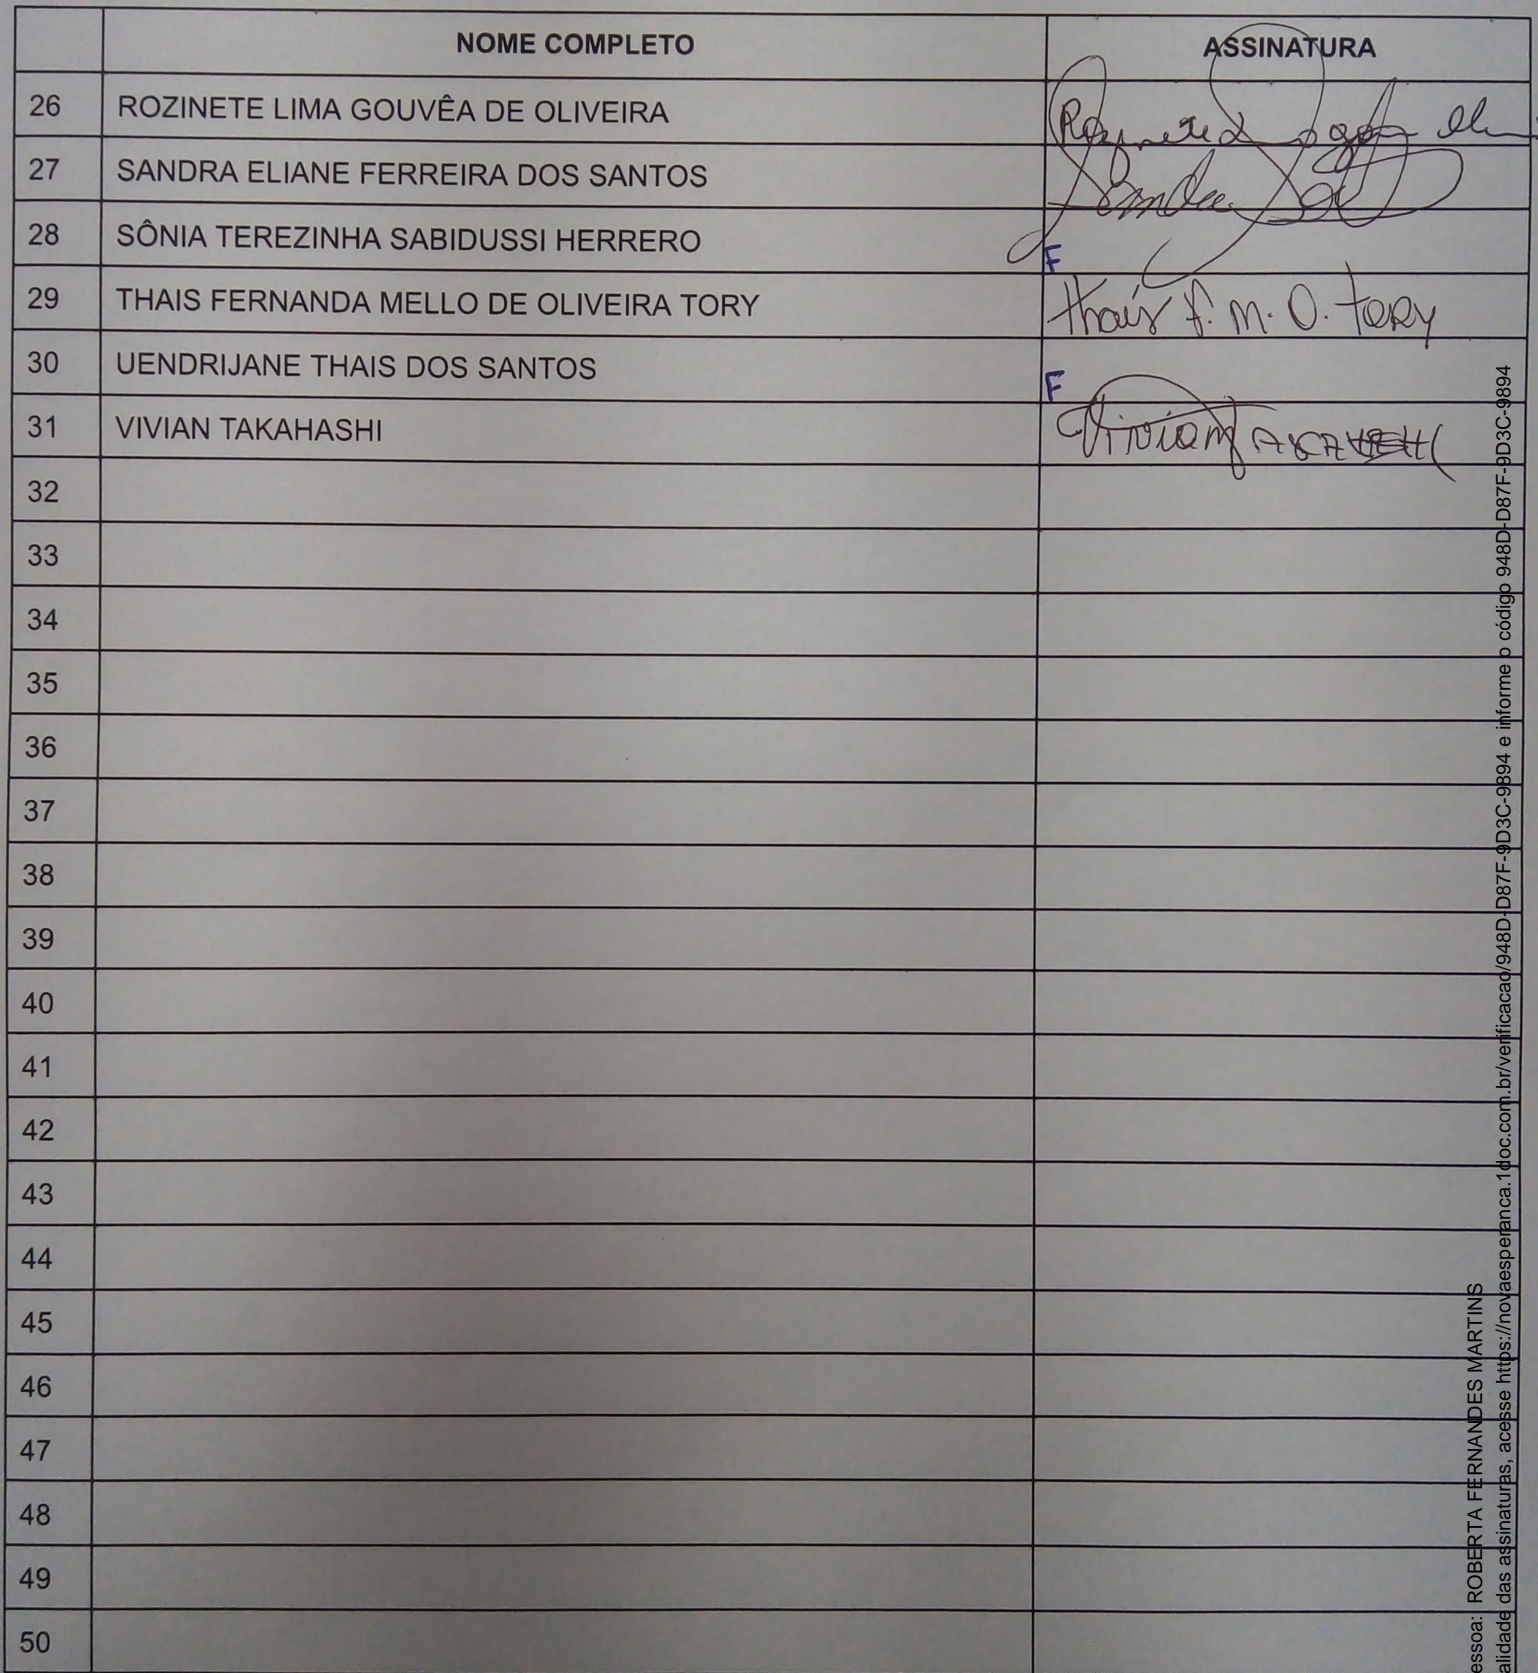 NOME COMPLETO ASSINATURA
26 ROZINETE LIMA GOUVÊA DE OLIVEIRA Rozinete
27 SANDRA ELIANE FERREIRA DOS SANTOS Sandra
28 SÔNIA TEREZINHA SABIDUSSI HERRERO F
29 THAIS FERNANDA MELLO DE OLIVEIRA TORY Thaís F. M. O. Tory
30 UENDRIJANE THAIS DOS SANTOS F
31 VIVIAN TAKAHASHI Vivian
32
33
34
35
36
37
38
39
40
41
42
43
44
45
46
47
48
49
50
essoa: ROBERTA FERNANDES MARTINS
alidade das assinaturas, acesse https://novaesperanca.1doc.com.br/verificacao/948D-D87F-9D3C-9894 e informe o código 948D-D87F-9D3C-9894